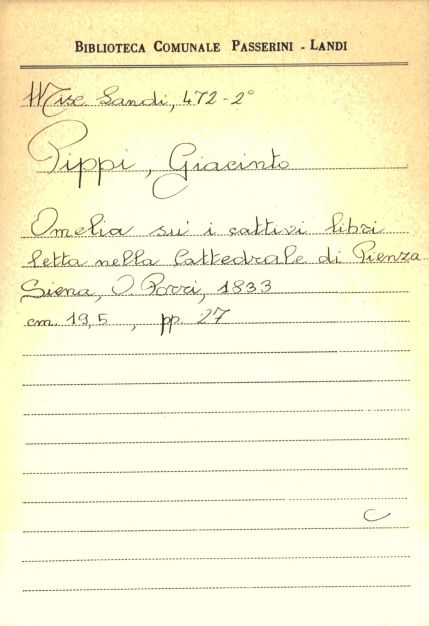 BIBLIOTECA COMUNALE PASSERINI - LANDI
Misc Landi, 472-2°
Pippi, Giacinto
Omelia su' i cattivi libri
letta nella Cattedrale di Pienza
Siena, O. Porri, 1833
cm. 19,5, pp. 27
C